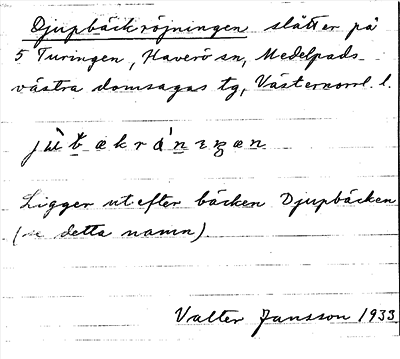 Djupbäckröjningen slåtter på
5 Turingen, Haverö sn, Medelpads
västra domsagas tg, Västernorrl. l.
Ligger utefter bäcken Djupbäcken
(se detta namn)
Valter Jansson 1933